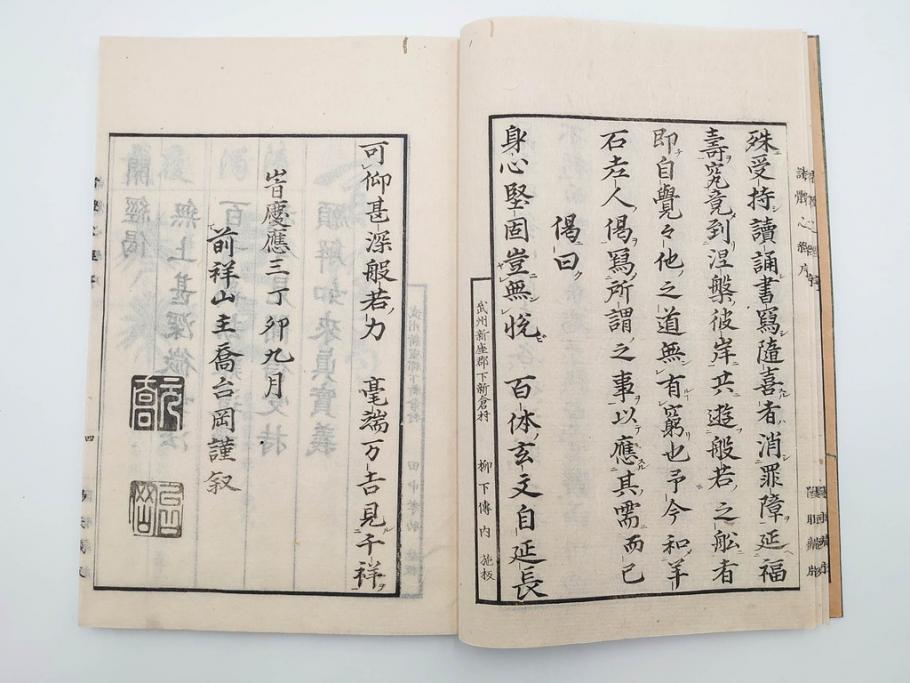 殊受持讀誦書寫隨喜者消罪障延福
壽究竟到涅槃彼岸共遊般若之舩者
即自覺々他之道無有窮也予今和羊
石老人偈寫所謂之事以應其需而已
偈曰
身心堅固豈無悦　百体玄文自延長
武州新座郡下新倉村　柳下傳内　施板
可仰甚深般若力　毫端万吉見千祥
旹慶應三丁卯九月
前祥山主喬台岡謹叙
四